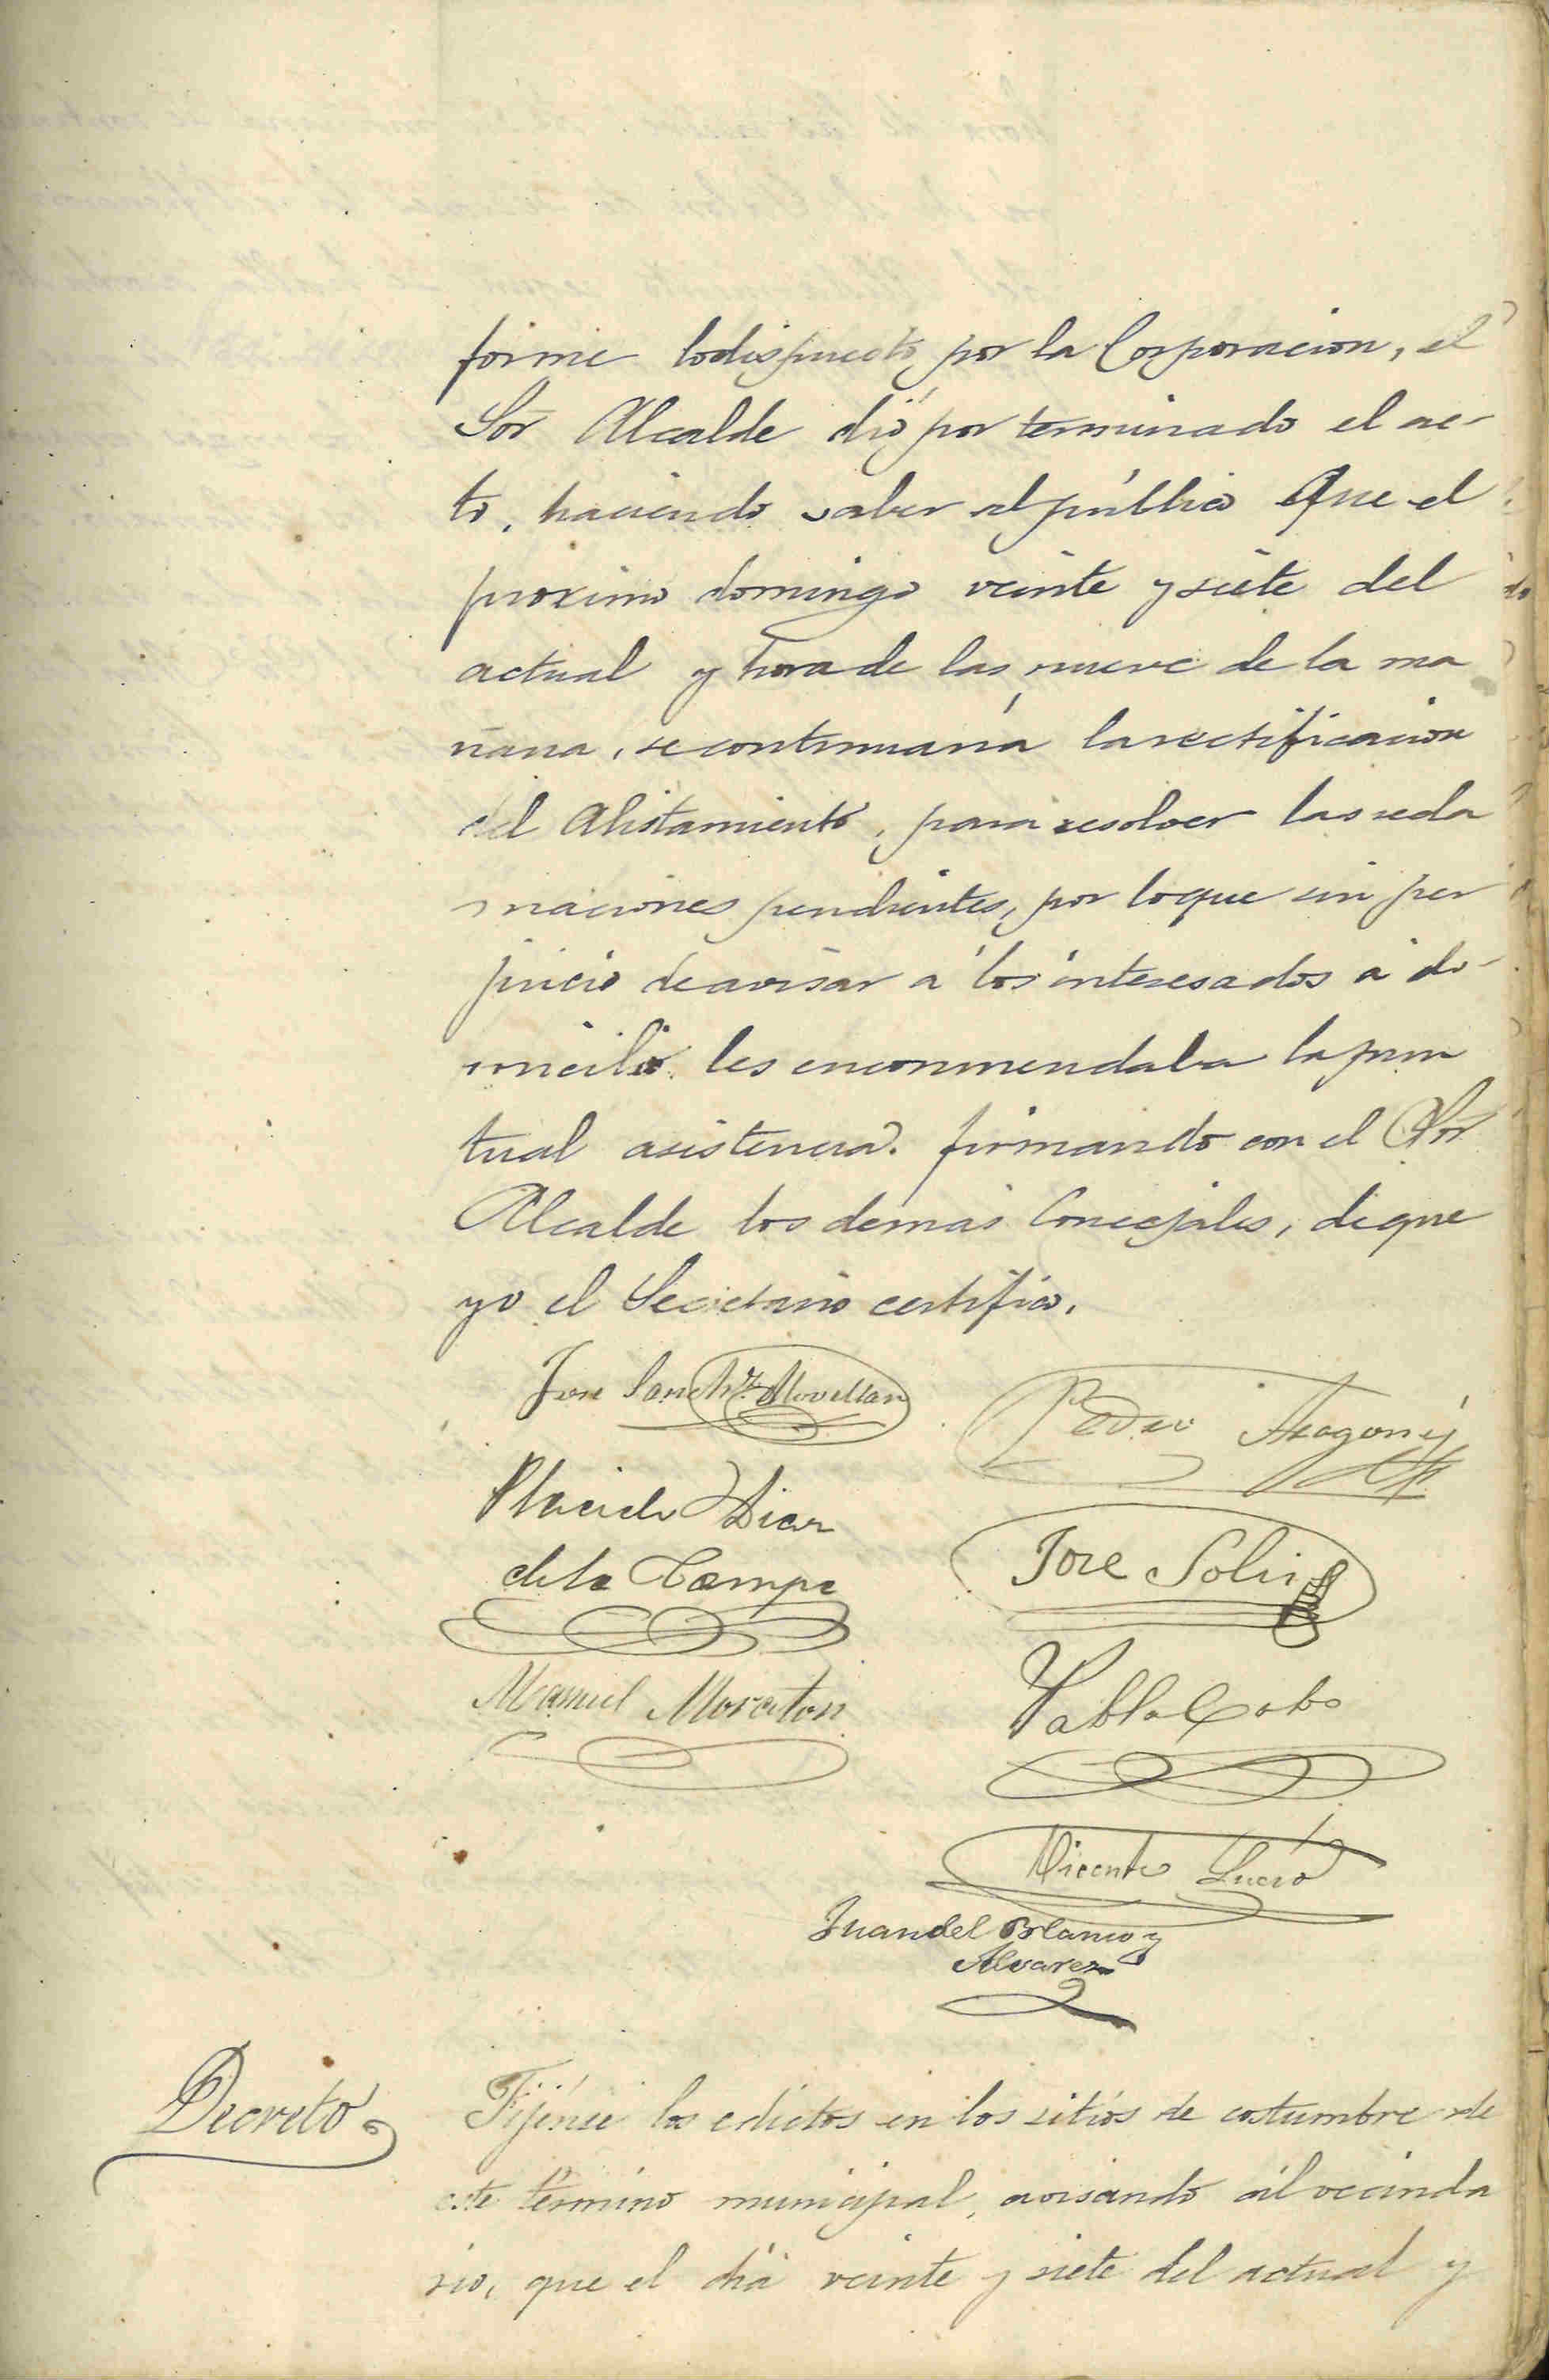 forme lo dispuesto por la Corporacion, el
Sor Alcalde dió por terminado el ac-
to, haciendo saber al público que el
proximo domingo veinte y siete del
actual y hora de las nueve de la ma
ñana, se continuaría la rectificacion
del Alistamiento, para resolver las recla
maciones pendientes, por lo que sin per
juicio de avisar á los interesados á do-
micilio les encommendaba la pun
tual asistencia. firmando con el Sor
Alcalde los demas Concejales, de que
yo el Secretario certifico.
Jose Sanchz. Movellan
Pedro Aragonés
Placido Diaz
de la Campa
Jose Solis
Manuel Moraton
Pablo Cobo
Vicente Lucio
Juan del Blanco y
Alvarez
Decreto
Fijense los edictos en los sitios de costumbre de
este término municipal, avisando al vecinda
rio, que el día veinte y siete del actual y